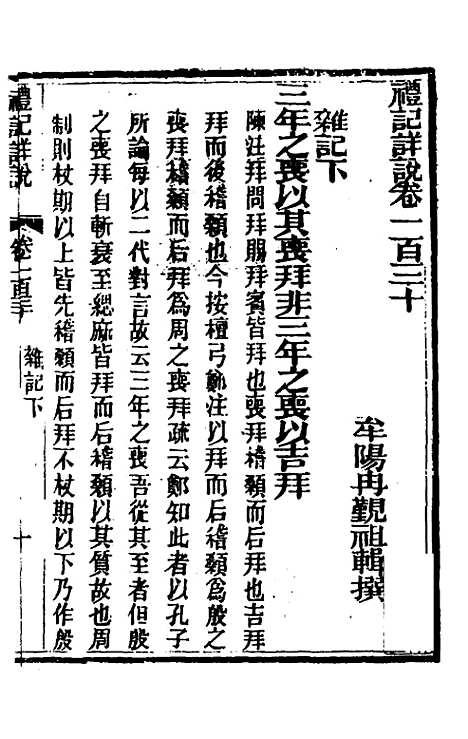 禮記詳說卷一百三十
牟陽冉覲祖輯撰
雜記下
三年之喪以其喪拜非三年之喪以吉拜
陳註拜問拜賜拜賓皆拜也喪拜稽顙而后拜也吉拜
拜而後稽顙也今按檀弓鄭注以拜而后稽顙為殷之
喪拜稽顙而后拜為周之喪拜疏云鄭知此者以孔子
所論每以二代對言故云三年之喪吾從其至者但殷
之喪拜自斬衰至緦麻皆拜而后稽顙以其質故也周
制則杖期以上皆先稽顙而后拜不杖期以下乃作殷
禮記詳說
卷一百三十
雜記下